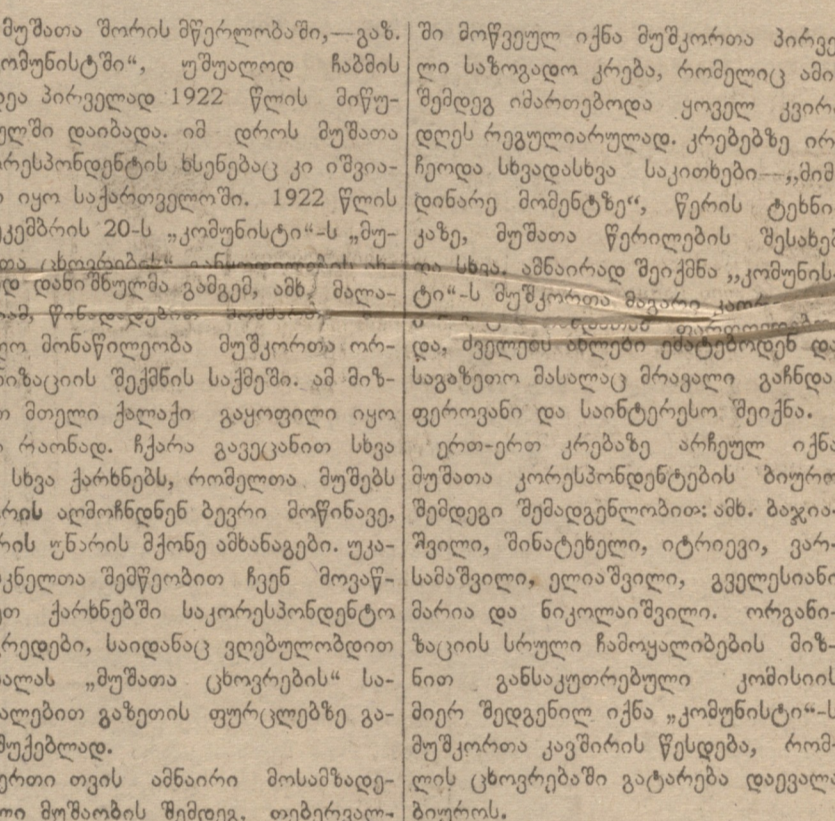 მუშათა შორის მწერლობაში,—გაზ.
ომუნისტში“, უშუალოდ ჩაბმის
დეა პირველად 1922 წლის მიწუ-
ულში დაიბადა. იმ დროს მუშათა
რესპონდენტის ხსენებაც კი იშვია-
იყო საქართველოში. 1922 წლის
ეკემბრის 20-ს „კომუნისტი“-ს „მუ-
თა ცხოვრების“ განყოფილების
დანიშნულმა გამგემ, ამხ. მალა-
წინადადებით
ლო მონაწილეობა მუშკორთა ორ-
ნიზაციის შექმნის საქმეში. ამ მიზ-
თ მთელი ქალაქი გაყოფილი იყო
რაონად. ჩქარა გავეცანით სხვა
სხვა ქარხნებს, რომელთა მუშებს
რის აღმოჩნდნენ ბევრი მოწინავე,
რის უნარის მქონე ამხანაგები. უკა-
კნელთა შემწეობით ჩვენ მოვაწ-
ეთ ქარხნებში საკორესპონდენტო
რედები, საიდანაც ვღებულობდით
ალას „მუშათა ცხოვრების“ სა-
ალებით გაზეთის ფურცლებზე გა-
შუქებლად.
ერთი თვის ამნაირი მოსამზადე-
ლი მუშაობის შემდეგ, თებერვალ-
ში მოწვეულ იქნა მუშკორთა პირვე
ლი საზოგადო კრება, რომელიც ამი
შემდეგ იმართებოდა ყოველ კვირ
დღეს რეგულიარულად. კრებებზე ირ
ჩეოდა სხვადასხვა საკითხები—„მიმ
დინარე მომენტზე“, წერის ტეხნი
კაზე, მუშათა წერილების შესახებ
და სხვა. ამნაირად შეიქმნა „კომუნის
ტი“-ს მუშკორთა მაგარი
და, ძველებს ახლები ემატებოდენ და
საგაზეთო მასალაც მრავალი გაჩნდა
ფეროვანი და საინტერესო შეიქნა.
ერთ-ერთ კრებაზე არჩეულ იქნა
მუშათა კორესპონდენტების ბიურო
შემდეგი შემადგენლობით: ამხ. ბაჯია-
შვილი, შინატეხელი, იტრიევი, ვარ-
სამაშვილი, ელიაშვილი, გველესიანი
მარია და ნიკოლაიშვილი. ორგანი-
ზაციის სრული ჩამოყალიბების მიზ-
ნით განსაკუთრებული კომისიის
მიერ შედგენილ იქნა „კომუნისტი“-ს
მუშკორთა კავშირის წესდება, რომ-
ლის ცხოვრებაში გატარება დაევალა
ბიუროს.